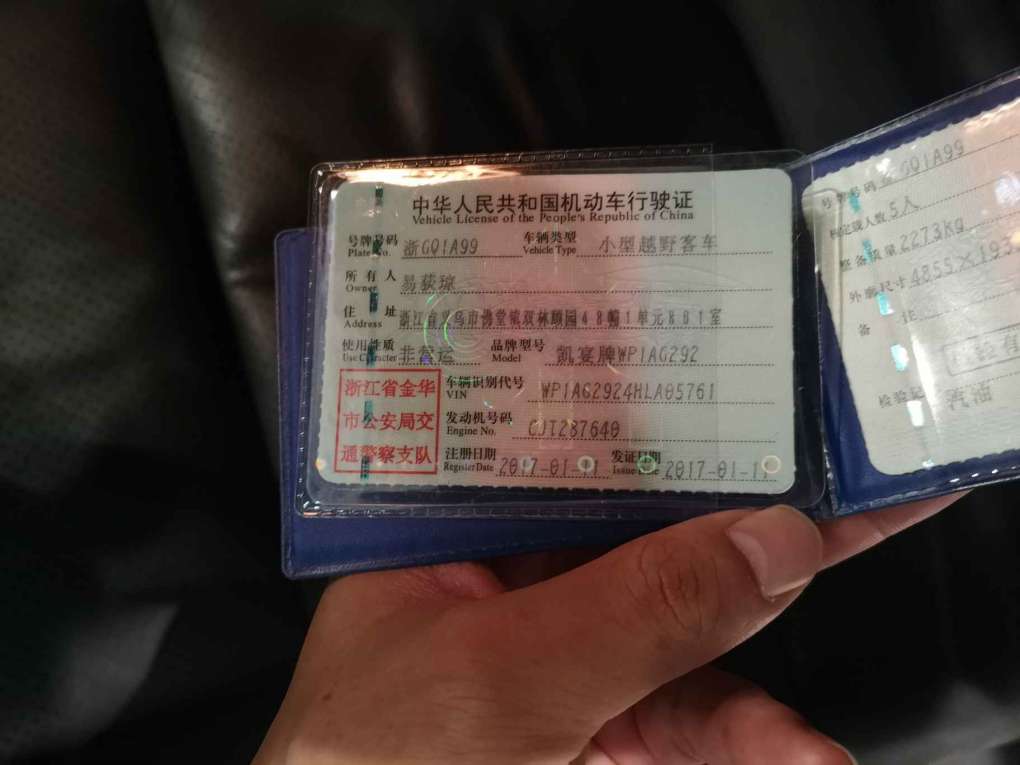 中华人民共和国机动车行驶证
Vehicle License of the People's Republic of China
号牌号码 浙GQ1A99 车辆类型 小型越野客车
Plate No. Vehicle Type
所有人 易荻琼
Owner
住址 浙江省义乌市佛堂镇双林颐园48幢1单元801室
Address
使用性质 非营运 品牌型号 凯宴牌WP1AG292
Use Character Model
浙江省金华
市公安局交
通警察支队
车辆识别代号 WP1AG2924HLA05761
VIN
发动机号码 CJT287640
Engine No.
注册日期 2017-01-11 发证日期 2017-01-11
Register Date Issue Date
号牌号码 浙GQ1A99
核定载人数 5人
整备质量 2273KG
外廓尺寸 4855×193
备注
检验记
汽油